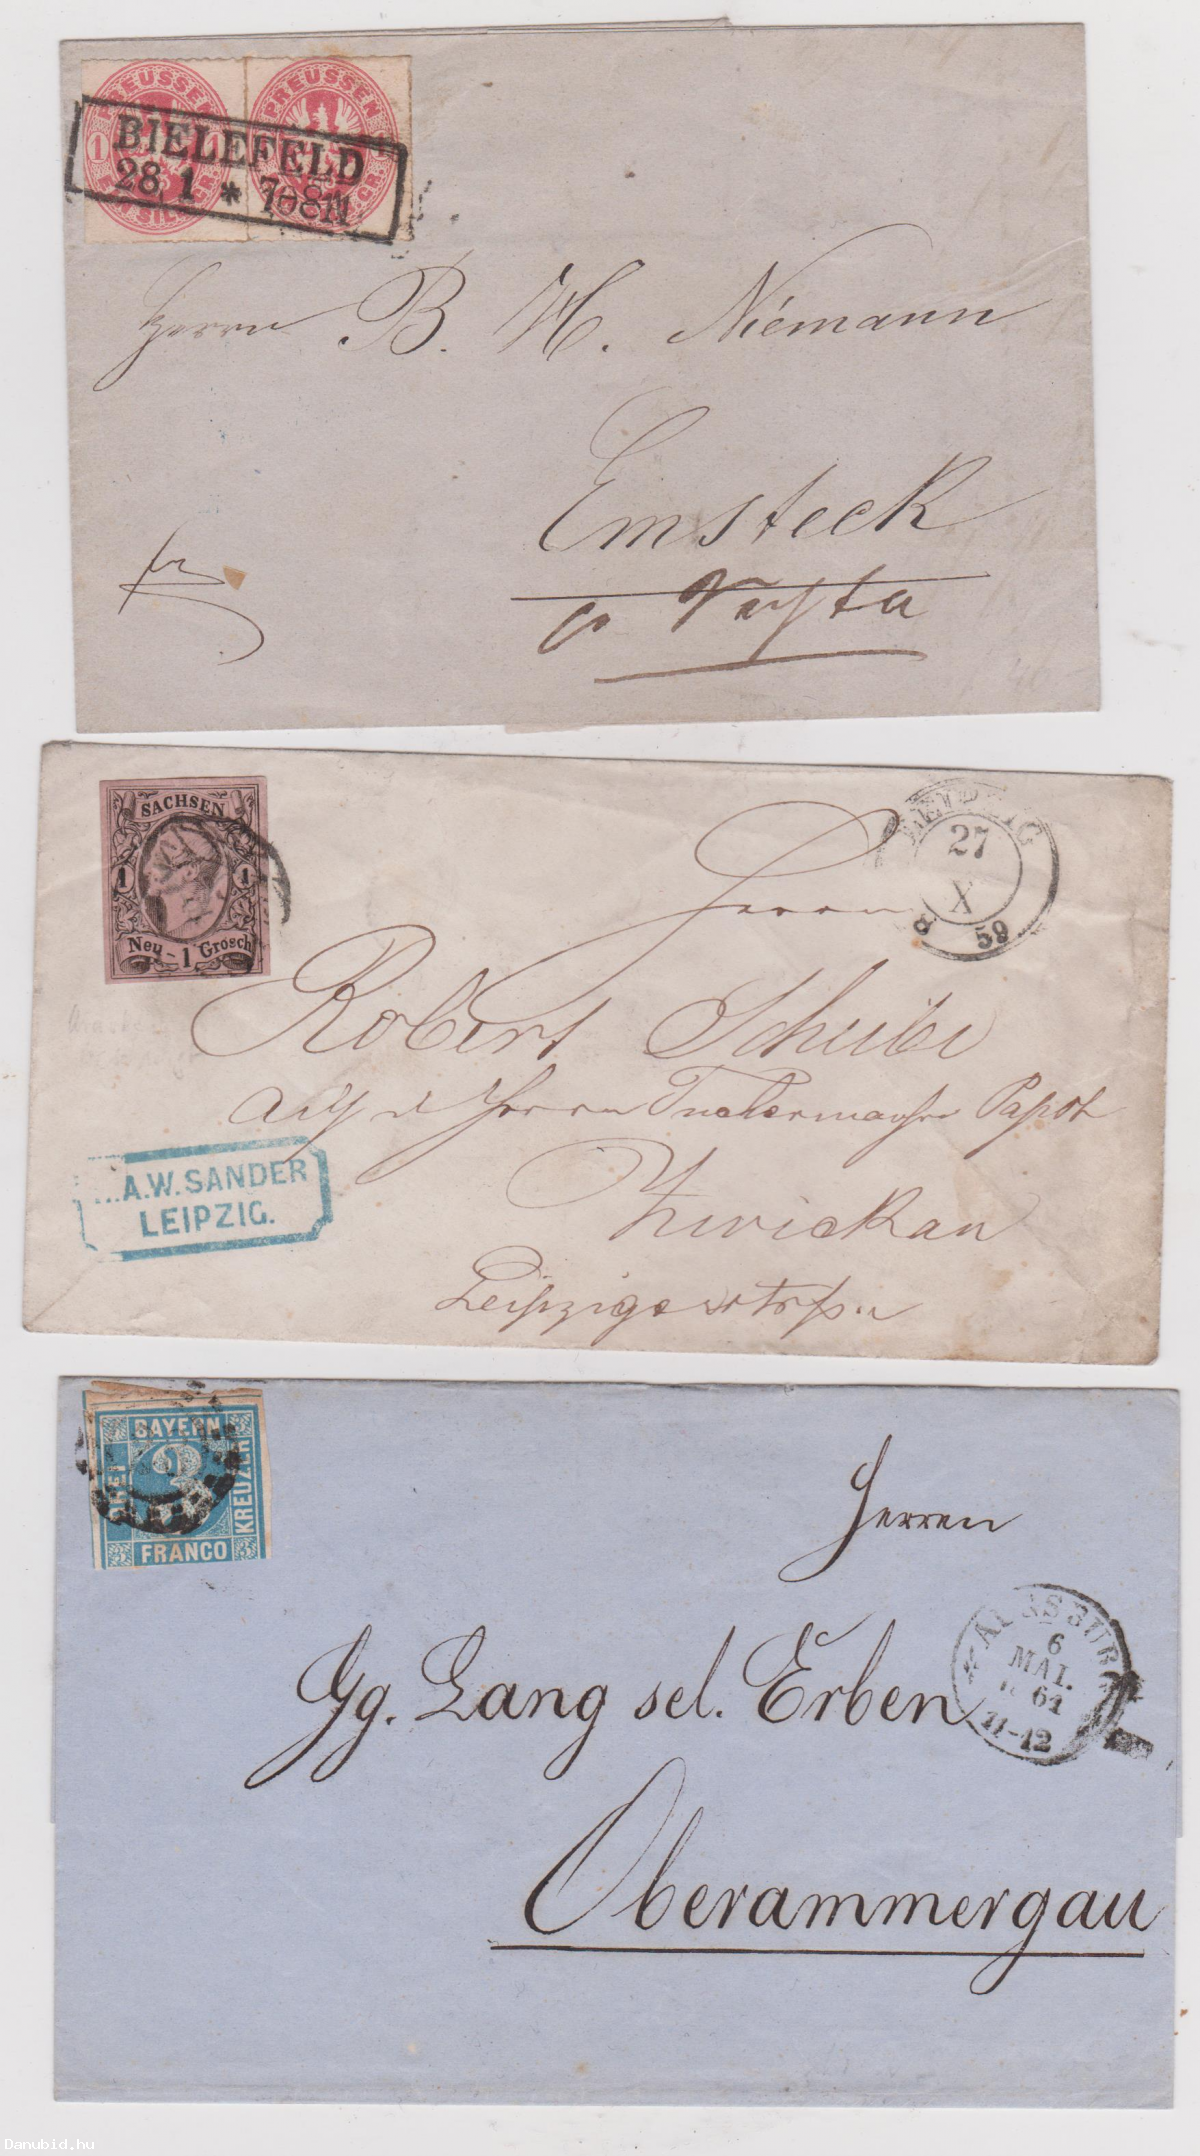 PREUSSEN PREUSSEN
1 1
SILB. GR.
BIELEFELD
28 1 * 7-8 N
Herrn B. H. Niemann
Emsteck
p Vechta
SACHSEN
1 1
Neu-1 Grosch
LEIPZIG
27
X
59
Herrn
Robert
A.W. SANDER
LEIPZIG.
Zwickau
BAYERN
DREI 3 KREUZER
FRANCO
Herren
AUGSBURG
6
MAI.
1861
11-12
Gg. Lang sel. Erben
Oberammergau
Danubid.hu